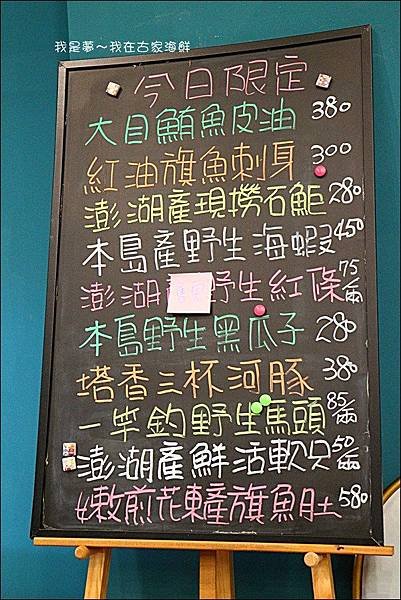 我是夢～我在古家海鮮
今日限定
大目鮪魚皮油 380
紅油旗魚刺身 300
澎湖產現撈石鮔 280
本島產野生海蝦 450
澎湖 野生紅條 75兩
本島野生黑瓜子 280
塔香三杯河豚 380
一竿釣野生馬頭 85兩
澎湖產鮮活軟只 50兩
嫩煎花東產旗魚肚 580